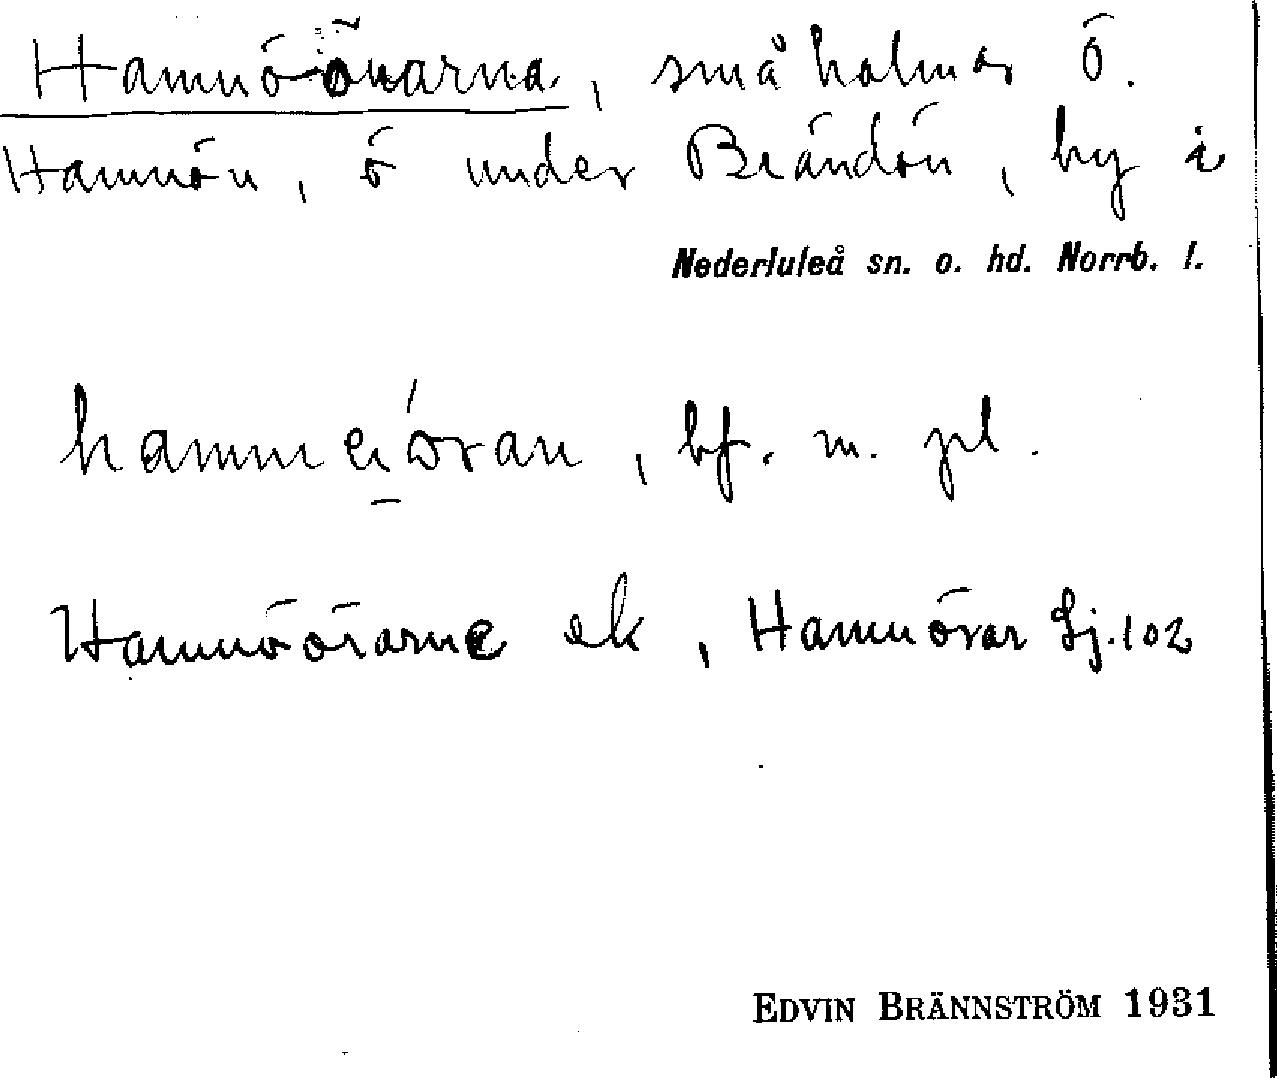 Hamnöörarna, små holmar Ö.
Hamnön, ö under Brändön, by i
Nederluleå sn. o. hd. Norrb. l.
bf. m. pl.
Hamnöörarne ek, Hamnörar Sj. 102
EDVIN BRÄNNSTRÖM 1931